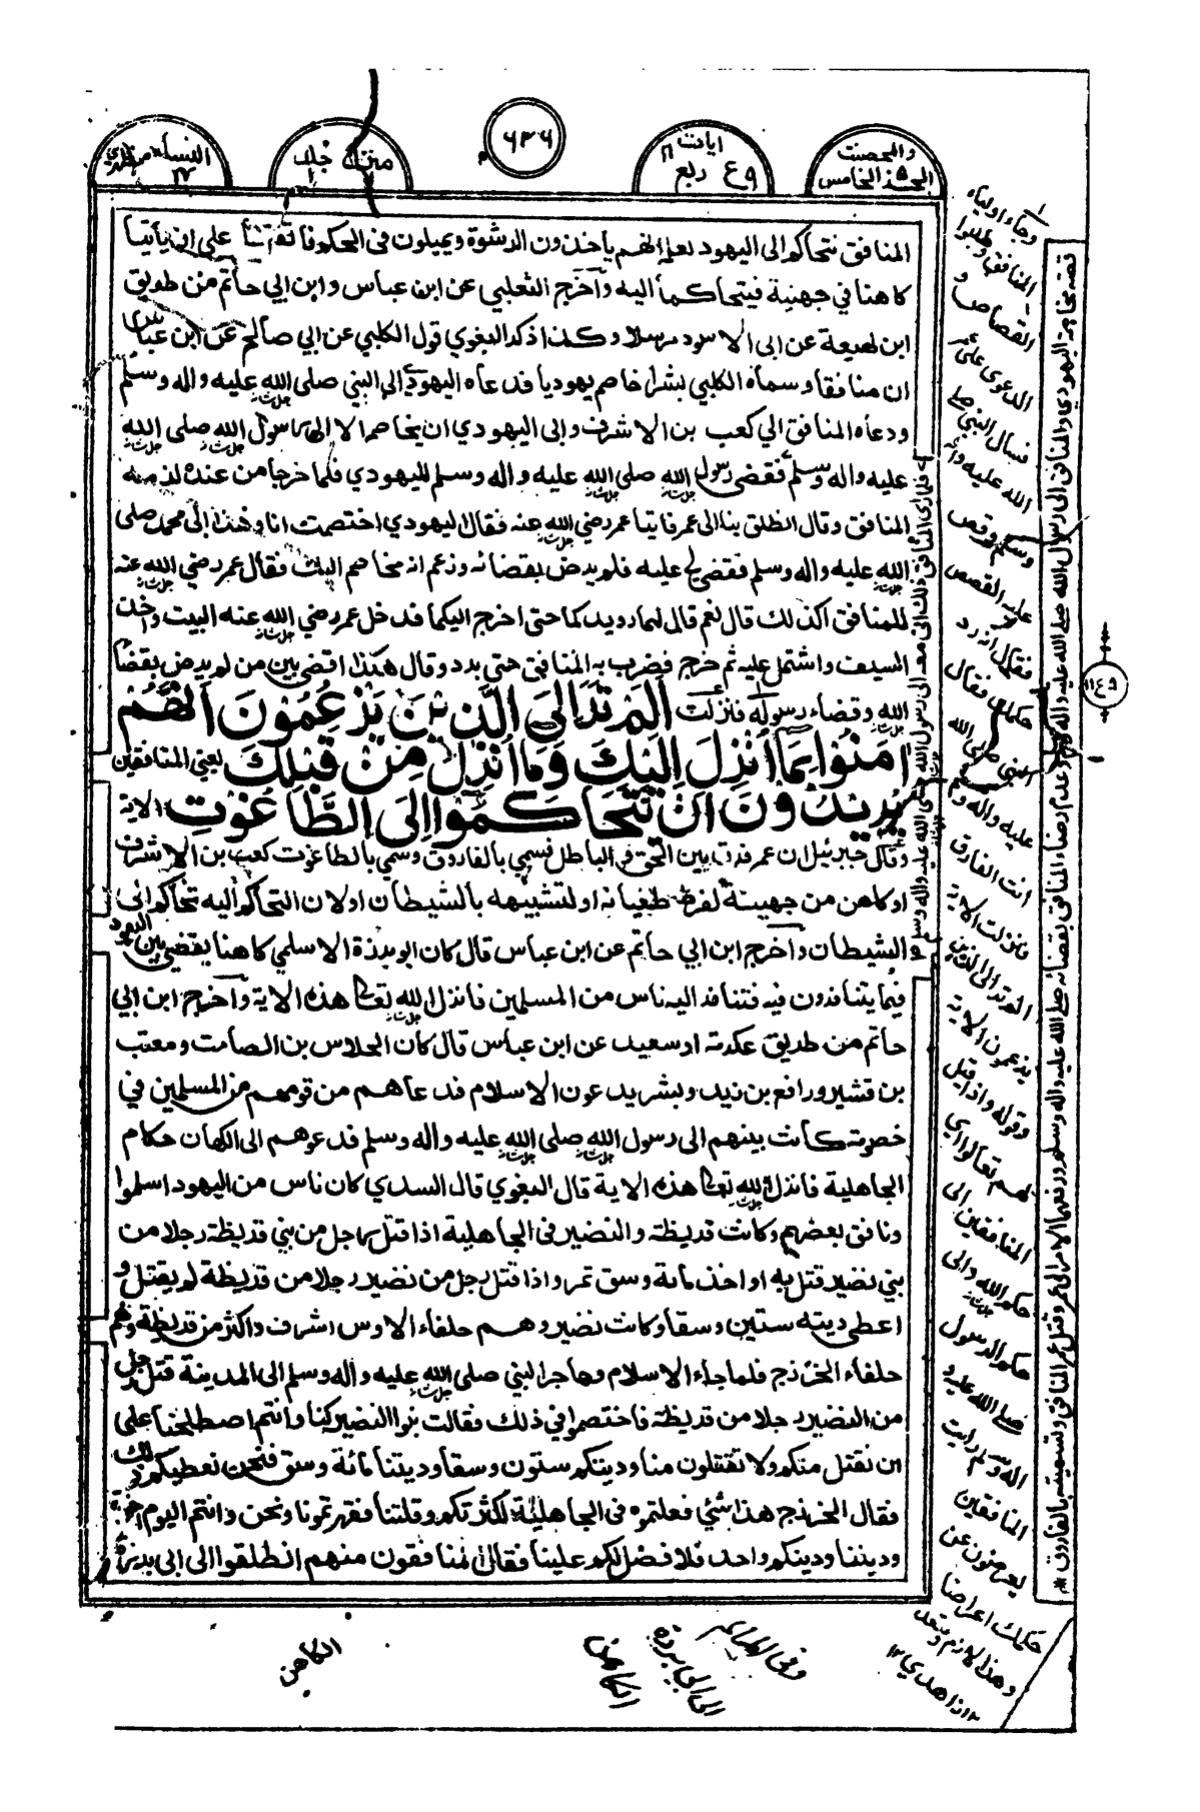 والمحصنت
الجزء الخامس
ايات
ربع
٦٣٦
منزل جلد
النساء
المنافق نتحاكم الى اليهود لعلمه انهم ياخذون الرشوة ويميلون فى الحكم فاتفقا على ان ياتيا
كاهنا في جهنية فيتحاكما اليه وآخرج الثعلبي عن ابن عباس وابن ابي حاتم من طريق
ابن لهيعة عن ابى الاسود مرسلا وكذا ذكر البغوي قول الكلبي عن ابي صالح عن ابن عباس
ان منافقا وسماه الكلبي بشرا خاصم يهوديا فدعاه اليهودي الى النبي صلى الله عليه واله وسلم
ودعاه المنافق الي كعب بن الاشرف وابى اليهودي ان يخاصم الا الى رسول الله صلى الله
عليه واله وسلم فقضى رسول الله صلى الله عليه واله وسلم لليهودي فلما خرجا من عنده لزمه
المنافق وقال انطلق بنا الى عمر فاتيا عمر رضي الله عنه فقال اليهودي اختصمت انا وهذا الى محمد صلى
الله عليه واله وسلم فقضى لي عليه فلم يرض بقضائه وزعم انه مخاصم اليك فقال عمر رضي الله عنه
للمنافق اكذلك قال نعم قال لهما رويدكما حتى اخرج اليكما فدخل عمر رضي الله عنه البيت واخذ
السيف واشتمل عليه ثم خرج فضرب به المنافق حتى برد وقال هكذا اقضي بين من لم يرض بقضاء
الله وقضاء رسوله فانزلت اَلَمْ تَرَ اِلَى الَّذِيْنَ يَزْعُمُوْنَ اَنَّهُمْ
اٰمَنُوْا بِمَا اُنْزِلَ اِلَيْكَ وَمَا اُنْزِلَ مِنْ قَبْلِكَ يعني المنافقين
يُرِيْدُوْنَ اَنْ يَّتَحَاكَمُوْا اِلَى الطَّاغُوْتِ الاية
وقال جبرئيل ان عمر فرق بين الحق والباطل فسمي بالفاروق وسمي بالطاغوت كعب بن الاشرف
او كاهن من جهينة لفرط طغيانه او لتشبيهه بالشيطان او لان التحاكم اليه تحاكم الى
الشيطان وآخرج ابن ابي حاتم عن ابن عباس قال كان ابو برزة الاسلمي كاهنا يقضي بين اليهود
فيما يتنافرون فيه فتنافر اليه ناس من المسلمين فانزل الله تعالى هذه الاية وآخرج ابن ابي
حاتم من طريق عكرمة او سعيد عن ابن عباس قال كان الجلاس بن الصامت ومعتب
بن قشير ورافع بن زيد وبشر يدعون الاسلام فدعاهم من قومهم من المسلمين في
خصومة كانت بينهم الى رسول الله صلى الله عليه واله وسلم فدعوهم الى الكهان حكام
الجاهلية فانزل الله تعالى هذه الاية قال البغوي قال السدي كان ناس من اليهود اسلموا
ونافق بعضهم وكانت قريظة والنضير فى الجاهلية اذا قتل رجل من بني قريظة رجلا من
بني نضير قتل به او اخذ مائة وسق تمر واذا قتل رجل من نضير رجلا من قريظة لم يقتل و
اعطى ديته ستين وسقا وكانت نضير وهم حلفاء الاوس اشرف واكثر من قريظة وهم
حلفاء الخزرج فلما جاء الاسلام وهاجر النبي صلى الله عليه واله وسلم الى المدينة قتل رجل
من النضير رجلا من قريظة فاختصموا في ذلك فقالت بنوا النضير كنا وانتم اصطلحنا على
ان نقتل منكم ولا تقتلون منا وديتكم ستون وسقا وديتنا مائة وسق فنحن نعطيكم ذلك
فقال الخزرج هذا شئ فعلتموه فى الجاهلية لكثرتكم وقلتنا فقهرتمونا ونحن وانتم اليوم اخوة
وديننا ودينكم واحد فلا فضل لكم علينا فقال المنافقون منهم انطلقوا الى ابي بردة
فلما راى المنافق ذلك اتى معه الى رسول الله صلى الله عليه واله وسلم
وجاء اولياء
المنافق وطلبوا
القصاص و
الدعوى على عمر
فسال النبي صلى
الله عليه واله
وسلم وقص
عليه القصص
فقال انه رد
حكمك فقال
النبي صلى الله
عليه واله وسلم
انت الفارق
فانزلت الاية
الم تر الى الذين
يزعمون الاية
وقوله واذا قيل
لهم تعالوا اي
المنافقين الى
حكم الله والى
حكم الرسول
صلى الله عليه و
اله وسلم رايت
المنافقين
يعرضون عن
حكمك اعراضا
وهذا لازم ومتعد
١٢
قصة مخاصمة اليهودي والمنافق الى رسول الله صلى الله عليه واله وسلم وعدم رضاء المنافق بقضائه صلى الله عليه واله وسلم ورفعهما الامر الى عمر وقتل عمر المنافق وتسميته بالفاروق
١١٤٩
الكاهن
الكاهن
الى ابي بردة